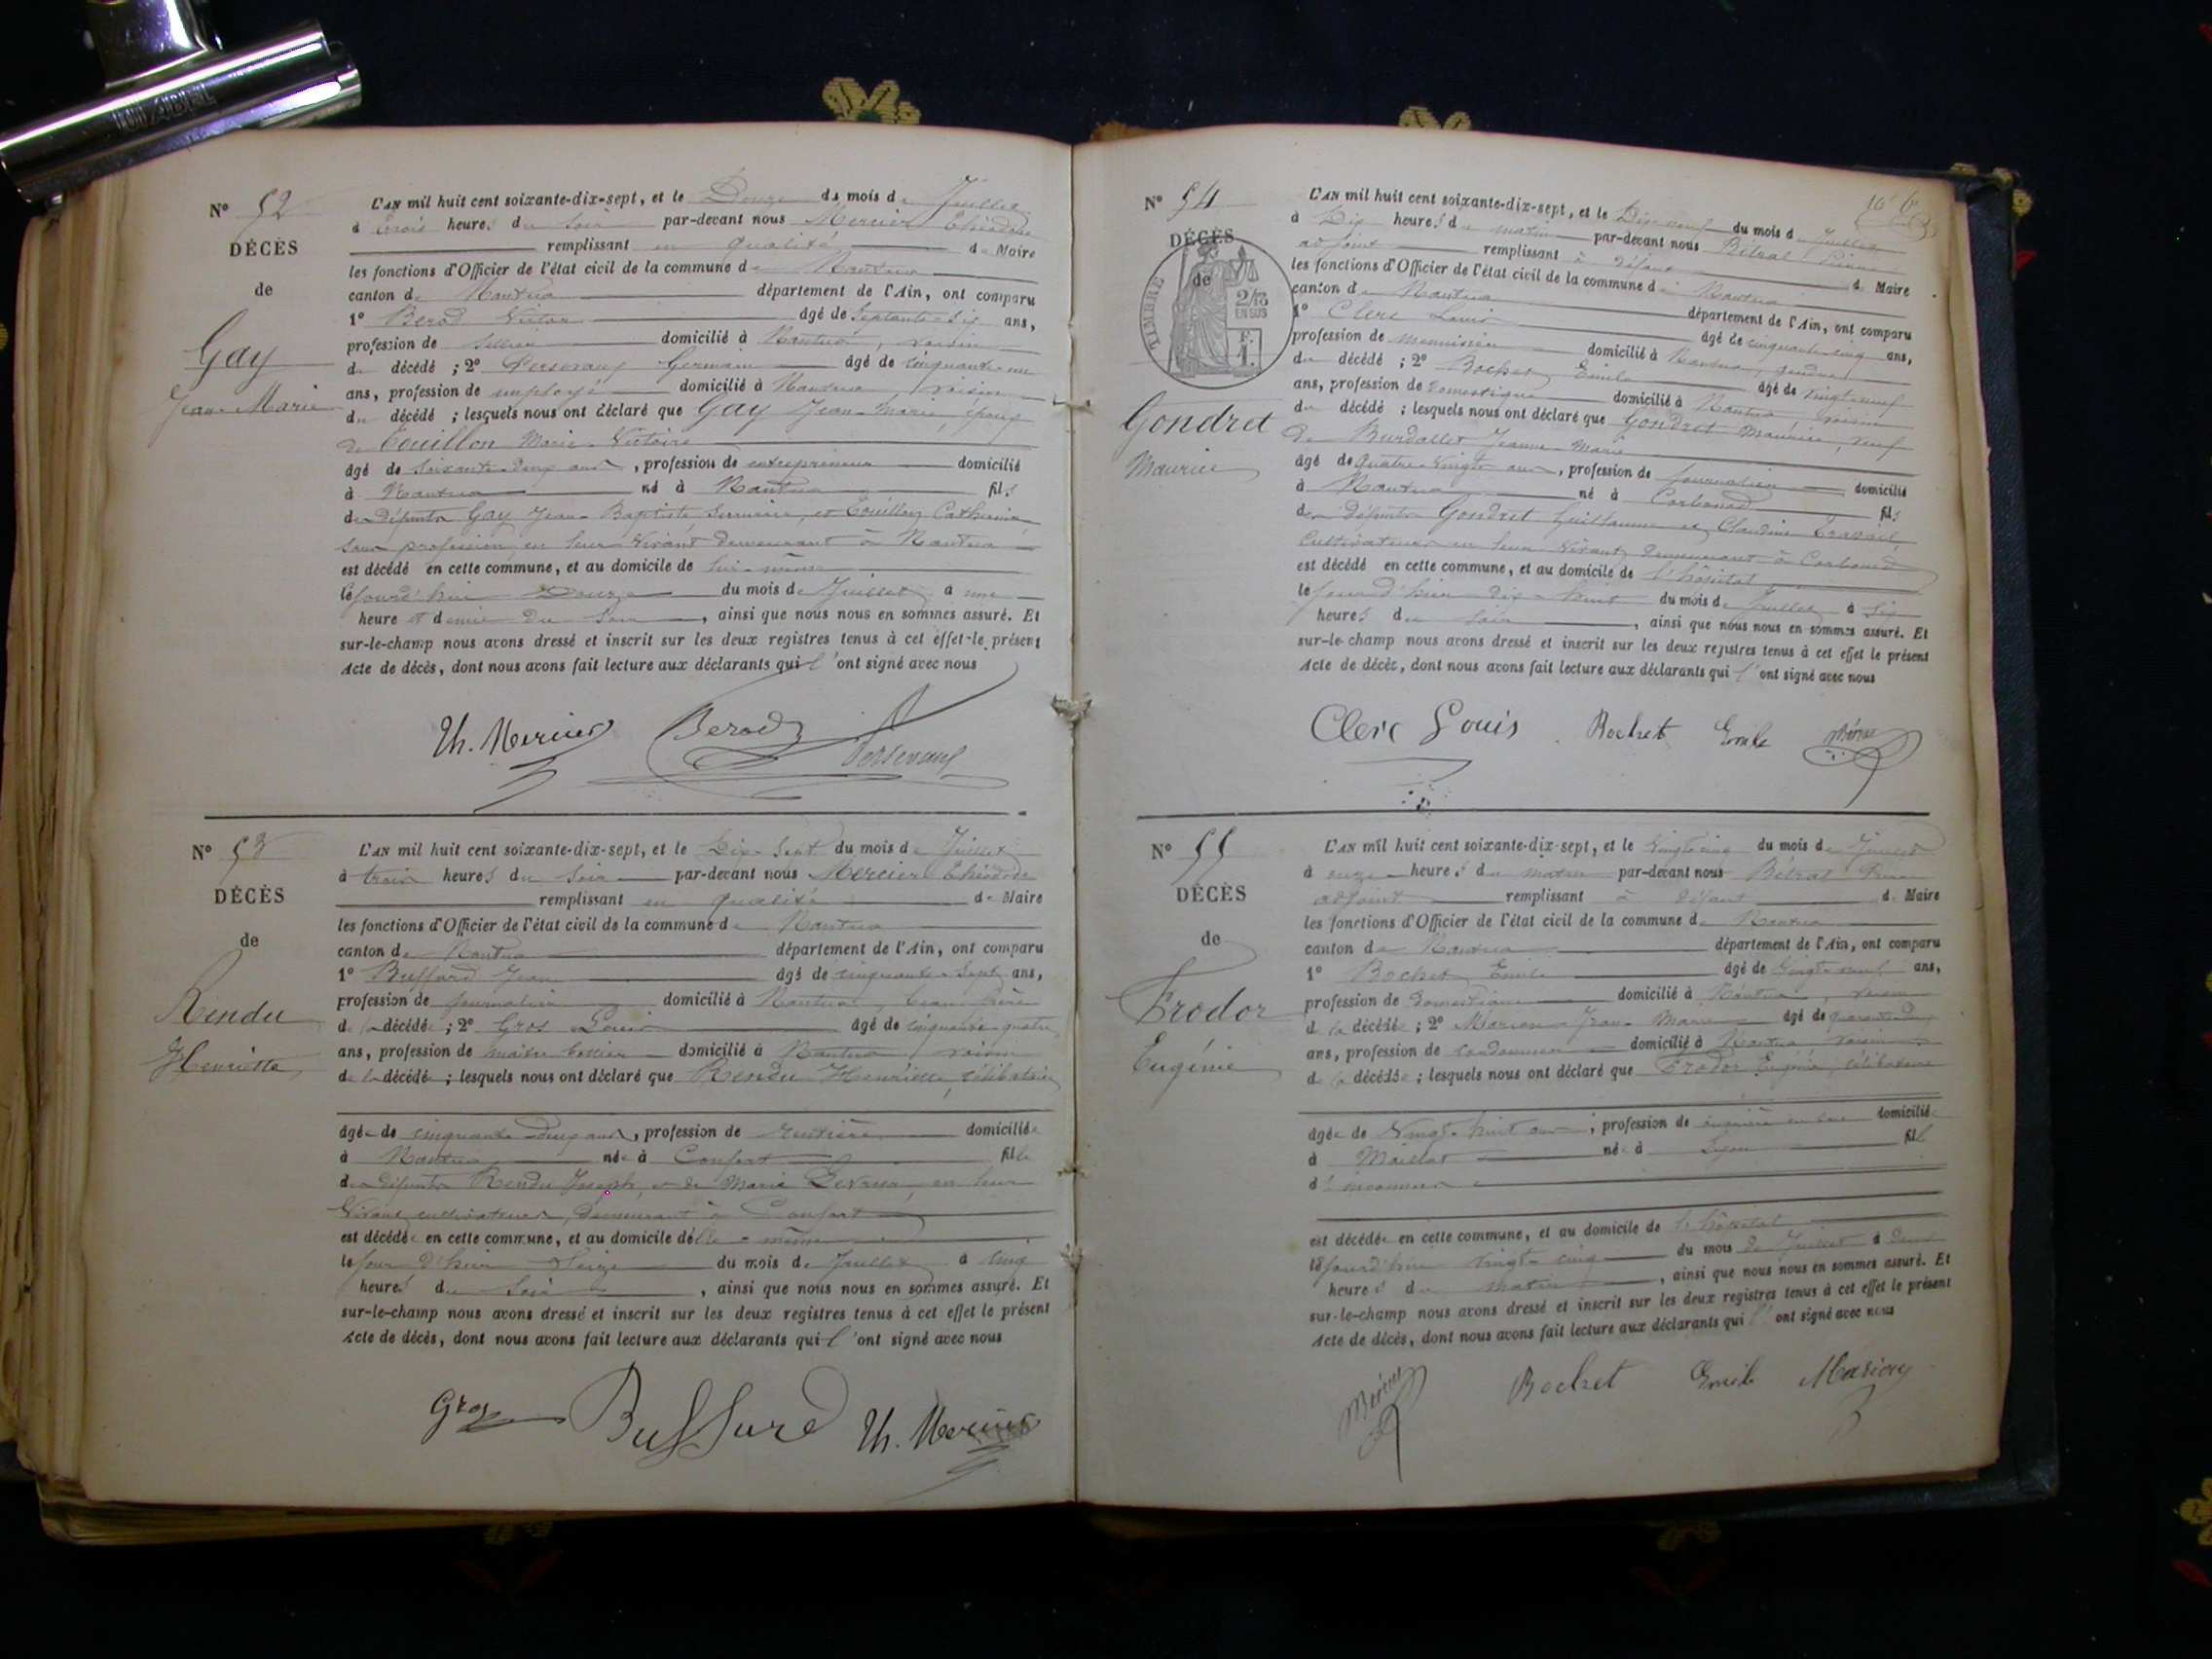 N° 52
DÉCÈS
de
Gay
Jean-Marie
L'AN mil huit cent soixante-dix-sept, et le Douze du mois de Juillet
à trois heures du soir par-devant nous Mercier Théodore
remplissant en qualité de Maire
les fonctions d'Officier de l'état civil de la commune de Nantua
canton de Nantua département de l'Ain, ont comparu
1° Berod Victor âgé de Septante-six ans,
profession de sellier domicilié à Nantua, voisin
du décédé ; 2° Persevaux Germain âgé de cinquante-un
ans, profession de employé domicilié à Nantua, voisin
du décédé ; lesquels nous ont déclaré que Gay Jean-Marie, époux
de Touillon Marie-Victoire
âgé de soixante-deux ans, profession de entrepreneur domicilié
à Nantua né à Nantua fils
de défunts Gay Jean-Baptiste serrurier, et Touillon Catherine
sans profession, en leur vivant demeurant à Nantua
est décédé en cette commune, et au domicile de lui-même
le jourd'hui Douze du mois de Juillet à une
heure et demie du soir, ainsi que nous nous en sommes assuré. Et
sur-le-champ nous avons dressé et inscrit sur les deux registres tenus à cet effet le présent
Acte de décès, dont nous avons fait lecture aux déclarants qui l'ont signé avec nous
Th. Mercier Berod Persevaux
N° 53
DÉCÈS
de
Rendu
Henriette
L'AN mil huit cent soixante-dix-sept, et le Dix-Sept du mois de Juillet
à trois heures du soir par-devant nous Mercier Théodore
remplissant en qualité de Maire
les fonctions d'Officier de l'état civil de la commune de Nantua
canton de Nantua département de l'Ain, ont comparu
1° Buffard Jean âgé de cinquante-sept ans,
profession de journalier domicilié à Nantua, beau-frère
de la décédée ; 2° Gros Louis âgé de cinquante-quatre
ans, profession de maître domicilié à Nantua, voisin
de la décédée ; lesquels nous ont déclaré que Rendu Henriette, célibataire
âgée de cinquante-deux ans, profession de rentière domiciliée
à Nantua née à Confort fille
de défunts Rendu Joseph, et de Marie en leur
vivant cultivateurs, demeurant à Confort
est décédée en cette commune, et au domicile d'elle-même
le jour d'hier Seize du mois de Juillet à cinq
heures du soir, ainsi que nous nous en sommes assuré. Et
sur-le-champ nous avons dressé et inscrit sur les deux registres tenus à cet effet le présent
Acte de décès, dont nous avons fait lecture aux déclarants qui l'ont signé avec nous
Gros Buffard Th. Mercier
N° 54
DÉCÈS
de
TIMBRE
2/10
EN SUS
F.
1.
Gondret
Maurice
L'AN mil huit cent soixante-dix-sept, et le Dix-neuf du mois de Juillet
à Dix heures du matin par-devant nous Bétral Pierre
adjoint remplissant à défaut de Maire
les fonctions d'Officier de l'état civil de la commune de Nantua
canton de Nantua département de l'Ain, ont comparu
1° Clerc Louis âgé de cinquante-cinq ans,
profession de menuisier domicilié à Nantua, gendre
du décédé ; 2° Bochet Emile âgé de vingt-neuf
ans, profession de domestique domicilié à Nantua, voisin
du décédé ; lesquels nous ont déclaré que Gondret Maurice, veuf
de Burdallet Jeanne-Marie
âgé de quatre-vingts ans, profession de journalier domicilié
à Nantua né à Corbonod fils
de défunts Gondret Guillaume et Claudine
cultivateurs en leur vivant demeurant à Corbonod
est décédé en cette commune, et au domicile de l'hôpital
le jour d'hier dix-huit du mois de Juillet à six
heures du soir, ainsi que nous nous en sommes assuré. Et
sur-le-champ nous avons dressé et inscrit sur les deux registres tenus à cet effet le présent
Acte de décès, dont nous avons fait lecture aux déclarants qui l'ont signé avec nous
Clerc Louis Bochet Emile
N° 55
DÉCÈS
de
Frodor
Eugénie
L'AN mil huit cent soixante-dix-sept, et le vingt-cinq du mois de Juillet
à onze heures du matin par-devant nous Bétral Pierre
adjoint remplissant à défaut de Maire
les fonctions d'Officier de l'état civil de la commune de Nantua
canton de Nantua département de l'Ain, ont comparu
1° Bochet Emile âgé de vingt-neuf ans,
profession de domestique domicilié à Nantua, voisin
de la décédée ; 2° Marion Jean-Marie âgé de quarante-deux
ans, profession de cordonnier domicilié à Nantua voisin
de la décédée ; lesquels nous ont déclaré que Frodor Eugénie, célibataire
âgée de vingt-huit ans, profession de ouvrière en soie domiciliée
à Maillat née à Lyon fille
d'inconnus
est décédée en cette commune, et au domicile de l'hôpital
le jourd'hui vingt-cinq du mois de Juillet à deux
heures du matin, ainsi que nous nous en sommes assuré. Et
sur-le-champ nous avons dressé et inscrit sur les deux registres tenus à cet effet le présent
Acte de décès, dont nous avons fait lecture aux déclarants qui l'ont signé avec nous
Bochet Emile Marion